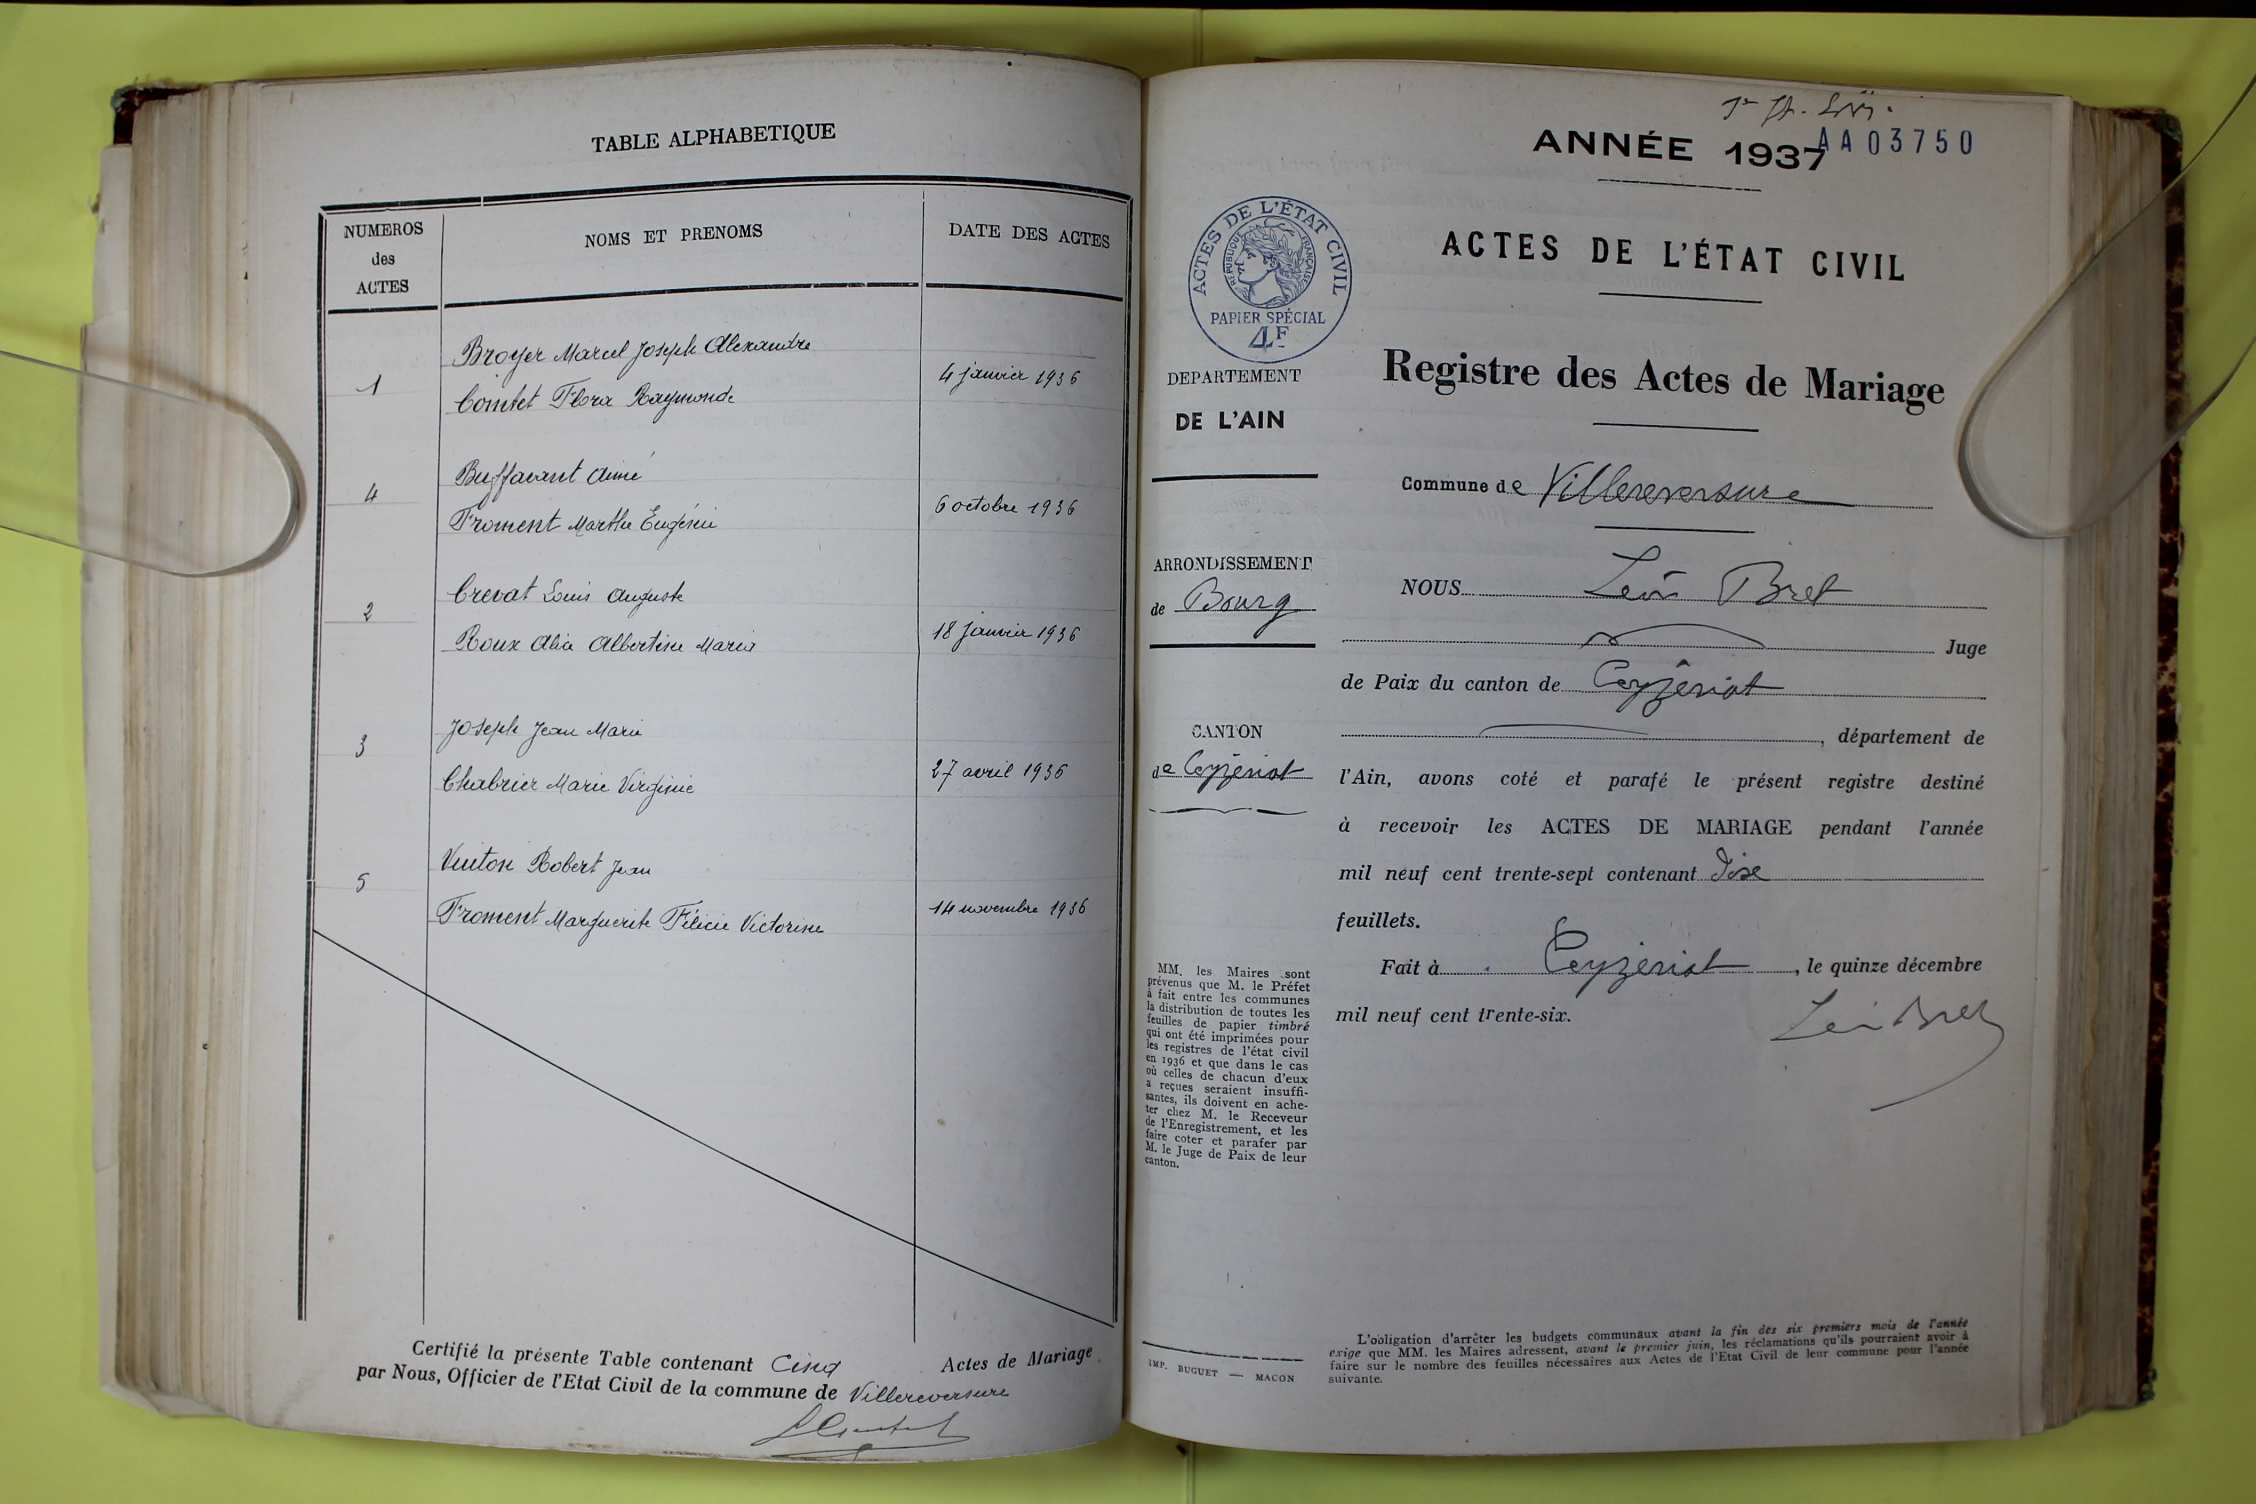 TABLE ALPHABETIQUE
NUMEROS
des
ACTES
NOMS ET PRENOMS
DATE DES ACTES
Broyer Marcel Joseph Alexandre
1
4 janvier 1936
Comtet Flora Raymonde
Buffavant Aimé
4
6 octobre 1936
Froment Marthe Eugénie
Crevat Louis Auguste
2
18 janvier 1936
Roux Alice Albertine Maria
Joseph Jean Marie
3
27 avril 1936
Chabrier Marie Virginie
Vuiton Robert Jean
5
14 novembre 1936
Froment Marguerite Félicie Victorine
Certifié la présente Table contenant Cinq Actes de Mariage
par Nous, Officier de l'Etat Civil de la commune de Villereversure
ANNÉE 1937
AA03750
ACTES DE L'ÉTAT CIVIL
RÉPUBLIQUE FRANÇAISE
PAPIER SPÉCIAL
4F
ACTES DE L'ÉTAT CIVIL
Registre des Actes de Mariage
DEPARTEMENT
DE L'AIN
Commune de Villereversure
ARRONDISSEMENT
de Bourg
NOUS Léon Bret
Juge
de Paix du canton de Ceyzériat
CANTON
de Ceyzériat
, département de
l'Ain, avons coté et parafé le présent registre destiné
à recevoir les ACTES DE MARIAGE pendant l'année
mil neuf cent trente-sept contenant Dix
feuillets.
Fait à Ceyzériat, le quinze décembre
mil neuf cent trente-six.
Léon Bret
MM. les Maires sont
prévenus que M. le Préfet
à fait entre les communes
la distribution de toutes les
feuilles de papier timbré
qui ont été imprimées pour
les registres de l'état civil
en 1936 et que dans le cas
où celles de chacun d'eux
a reçues seraient insuffi-
santes, ils doivent en ache-
ter chez M. le Receveur
de l'Enregistrement, et les
faire coter et parafer par
M. le Juge de Paix de leur
canton.
IMP. BUGUET — MACON
L'obligation d'arrêter les budgets communaux avant la fin des six premiers mois de l'année
exige que MM. les Maires adressent, avant le premier juin, les réclamations qu'ils pourraient avoir à
faire sur le nombre des feuilles nécessaires aux Actes de l'Etat Civil de leur commune pour l'année
suivante.